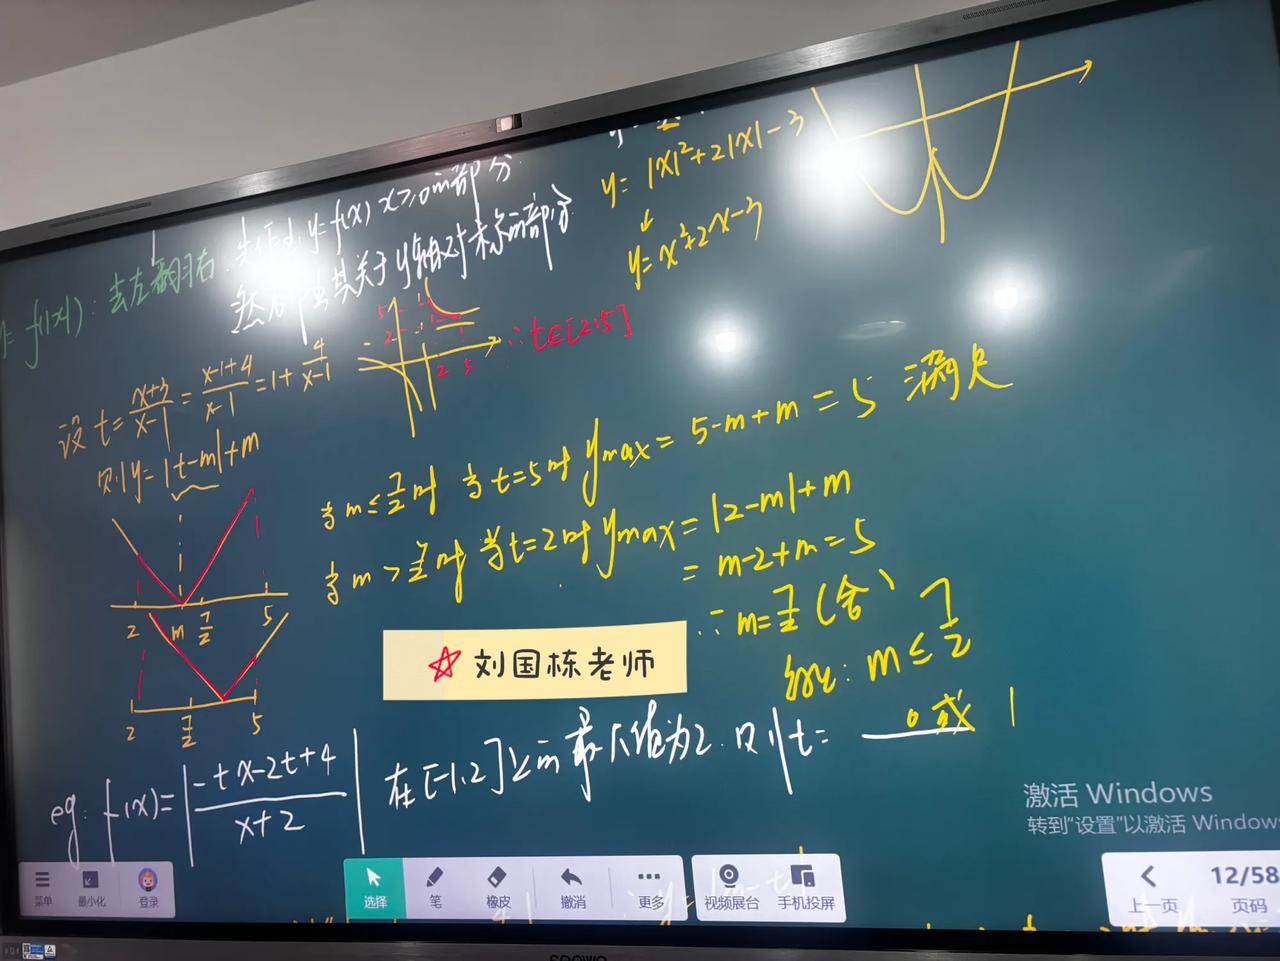 y=|x|²+2|x|-3
↓
y=x²+2x-3
y=f(|x|):去左翻右:先作出y=f(x) x≥0的部分
然后作出其关于y轴对称的部分
5
2
2 5
∴t∈[2,5]
设t=\frac{x+3}{x-1}=\frac{x-1+4}{x-1}=1+\frac{4}{x-1}
则y=|t-m|+m
当m≤\frac{7}{2}时 当t=5时 ymax=5-m+m=5 满足
当m>\frac{7}{2}时 当t=2时 ymax=|2-m|+m
=m-2+m=5
∴m=\frac{7}{2}(舍)
综上:m≤\frac{7}{2}
2 m \frac{7}{2} 5
2 \frac{7}{2} 5
刘国栋老师
eg:f(x)=|\frac{-tx-2t+4}{x+2}| 在[-1,2]上的最大值为2.则t=0或1
激活 Windows
转到“设置”以激活 Windows
菜单 最小化 登录
选择 笔 橡皮 撤消 更多
视频展台 手机投屏
上一页 12/58 页码
seewo